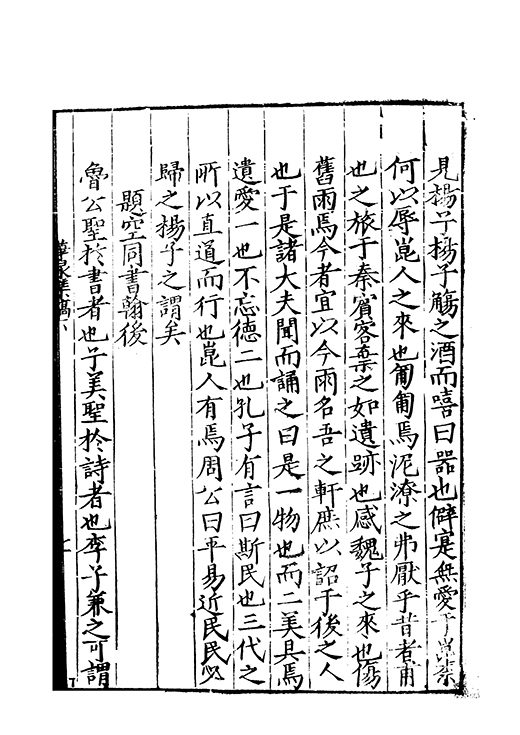 見楊子楊子觴之酒而嘻曰器也僻寔無愛于崑柰
何以辱崑人之來也匍匐焉泥潦之弗厭乎昔者甫
也之旅于秦賓客棄之如遺跡也感魏子之來也傷
舊雨焉今者宜以今雨名吾之軒庶以詔于後之人
也于是諸大夫聞而誦之曰是一物也而二美具焉
遺愛一也不忘德二也孔子有言曰斯民也三代之
所以直道而行也崑人有焉周公曰平易近民民必
歸之楊子之謂矣
題空同書翰後
魯公聖於書者也子美聖於詩者也李子兼之可謂